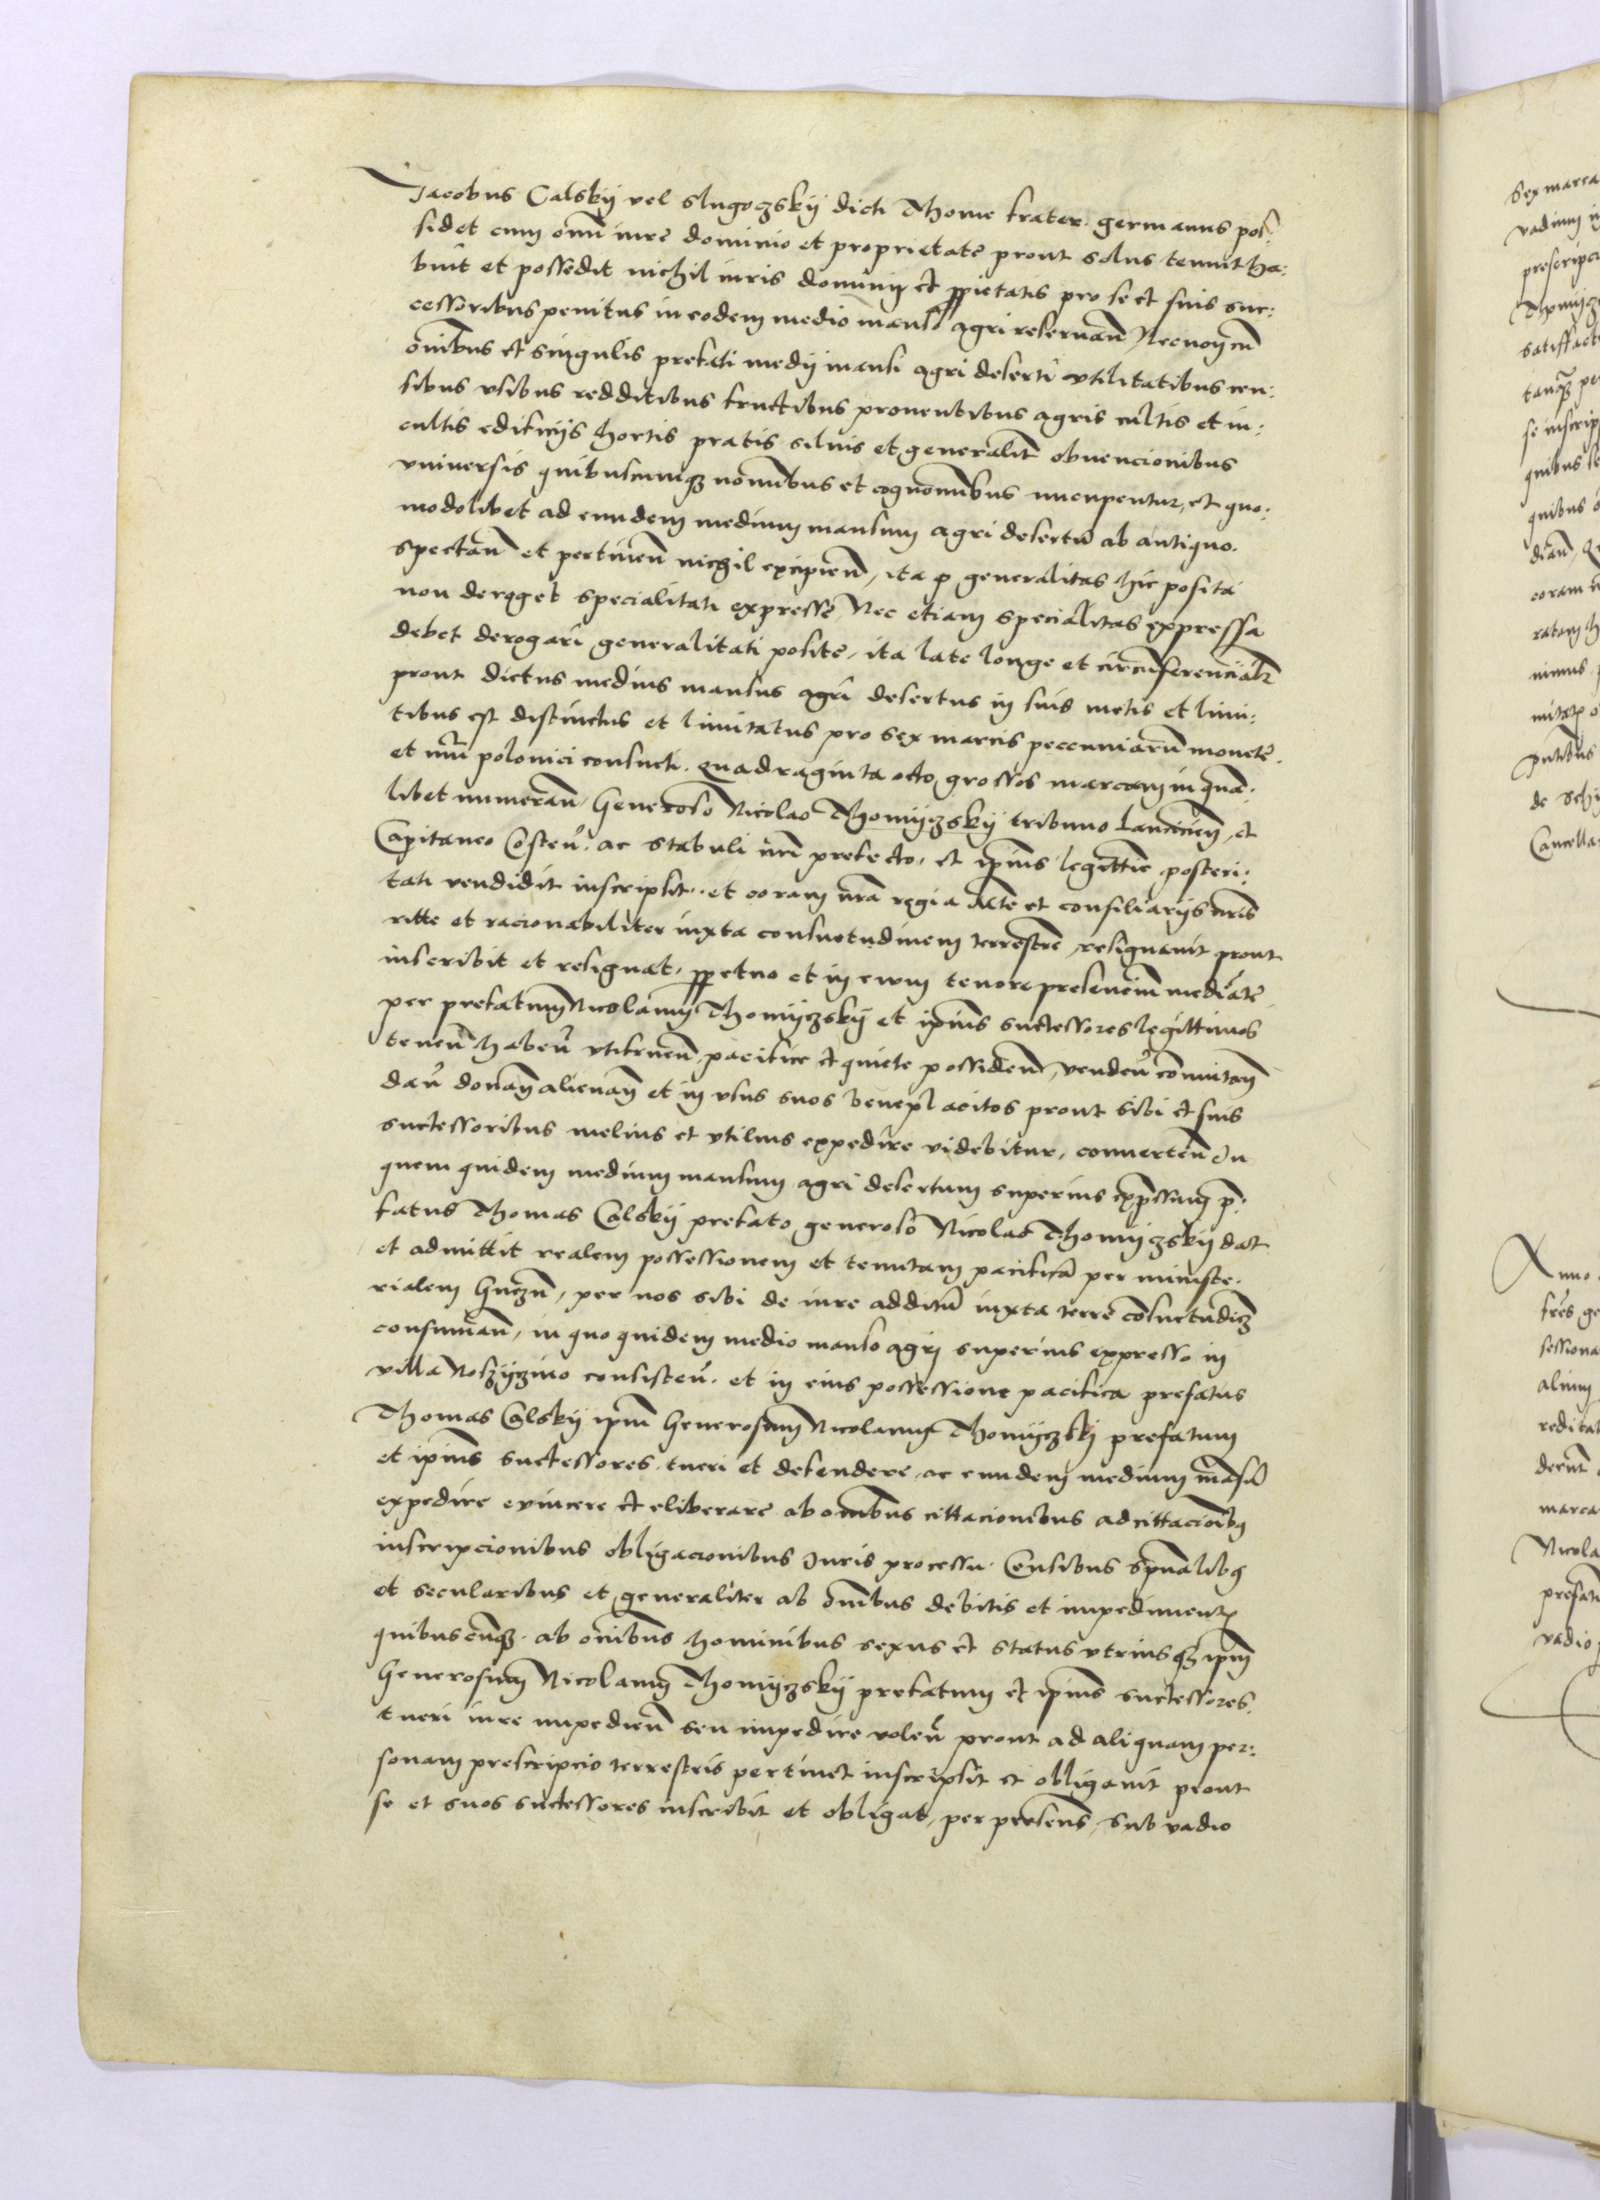 Jacobus Calskij vel Slugoczskij dicti Thome frater germanus pos:
sidet cum omni iure dominio et proprietate prout solus tenuit ha:
buit et possedit nichil iuris dominij et proprietatis pro se et suis suc:
cessoribus penitus in eodem medio manso agri reservan Necnon cum
omnibus et singulis prefati medij mansi agri deserti utilitatibus cen:
sibus usibus redditibus fructibus proventibus agris cultis et in:
cultis edificijs hortis pratis silvis et generalit obvencionibus
universis quibuscumq nominibus et cognominibus nuncupentur, et quo:
modolibet ad eundem medium mansum agri desertu ab antiquo.
spectan et pertinen nichil excipien, ita q generalitas hic posita
non deroget specialitati expresse, Nec etiam specialitas expressa
debet derogari generalitati posite, ita late longe et circumferencialr
prout dictus medius mansus agri desertus in suis metis et limi:
tibus est distinctus et limitatus pro sex marcis peccuniaru monete.
et numi polonici consueti. quadraginta octo grossos marcam in quam:
libet numeran, Generoso Nicolao Thomijczskij tribuno Lancicien, et
Capitaneo Costen. ac stabuli nri prefecto, et ipius legittime posteri:
tati vendidit inscripsit. et coram nra regia Mte et consiliarijs nris
ritte et racionabiliter iuxta consuetudinem terrestre resignavit prout
inscribit et resignat, perpetuo et in evum tenore presencium mediate
per prefatum Nicolaum Thomijczskij et ipius suctessores legittimos
tenen haben utifruen pacifice et quiete possiden, venden comutan
dan donan alienan et in usus suos beneplacitos prout sibi et suis
suctessoribus melius et utilius expedire videbitur, converten In
quem quidem medium mansum agri desertum superius expressum p:
fatus Thomas Calskij prefato generoso Nicolao Thomijczskij dat
et admittit realem possessionem et tenutam pacifica per ministe.
rialem Gneznen, per nos sibi de iure additu iuxta terre consuetudiez
consuman, in quo quidem medio manso agri superius expresso in
villa Noszijczino consisten. et in eius possessione pacifica prefatus
Thomas Calskij ipm Generosum Nicolaum Thomijczskij prefatum
et ipius suctessores. tueri et defendere, ac eundem medium mansu
expedire evincere et eliberare ab omnibus cittacionibus adcittacionibq
inscripcionibus obligacionibus Iuris processu. Censibus spualibq
et secularibus et generaliter ab omnibus debitis et impedimentis
quibuscumq. ab omnibus hominibus sexus et status utriusq ipm
Generosum Nicolaum Thomijczskij prefatum et ipius suctessores.
tueri iure impedien seu impedire volen prout ad aliquam per:
sonam prescripcio terrestris pertinet inscripsit et obligavit prout
se et suos suctessores inscribit et obligat, per presens, Sub vadio